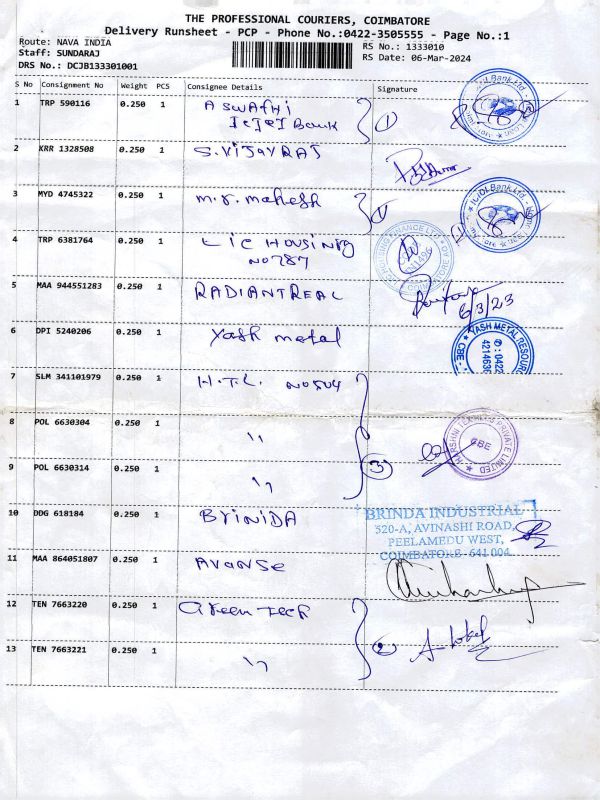 THE PROFESSIONAL COURIERS, COIMBATORE
Delivery Runsheet - PCP - Phone No.:0422-3505555 - Page No.:1
Route: NAVA INDIA
RS No.: 1333010
Staff: SUNDARAJ
RS Date: 06-Mar-2024
DRS No.: DCJB133301001
S No Consignment No Weight PCS Consignee Details Signature
1 TRP 590116 0.250 1 Aswathi
Bank 1
2 KRR 1328508 0.250 1 S. VIJAYRAJ
3 MYD 4745322 0.250 1 m.s. mahesh 1
4 TRP 6381764 0.250 1 LIC HOUSING
NO 787
5 MAA 944551283 0.250 1 RADIANTREAL
6/3/23
6 DPI 5240206 0.250 1 Yash metal
YASH METAL RESOURC
✆:0422
421463
CBE -
7 SLM 341101979 0.250 1 H.T.L. NO 504
8 POL 6630304 0.250 1 "
PRIVATE LIMITED
CBE
9 POL 6630314 0.250 1 " 3
10 DDG 618184 0.250 1 BRINIDA
BRINDA INDUSTRIAL
320-A, AVINASHI ROAD,
PEELAMEDU WEST,
COIMBATORE - 641 004.
11 MAA 864051807 0.250 1 Avanse
12 TEN 7663220 0.250 1 Green Tech
2
13 TEN 7663221 0.250 1 "